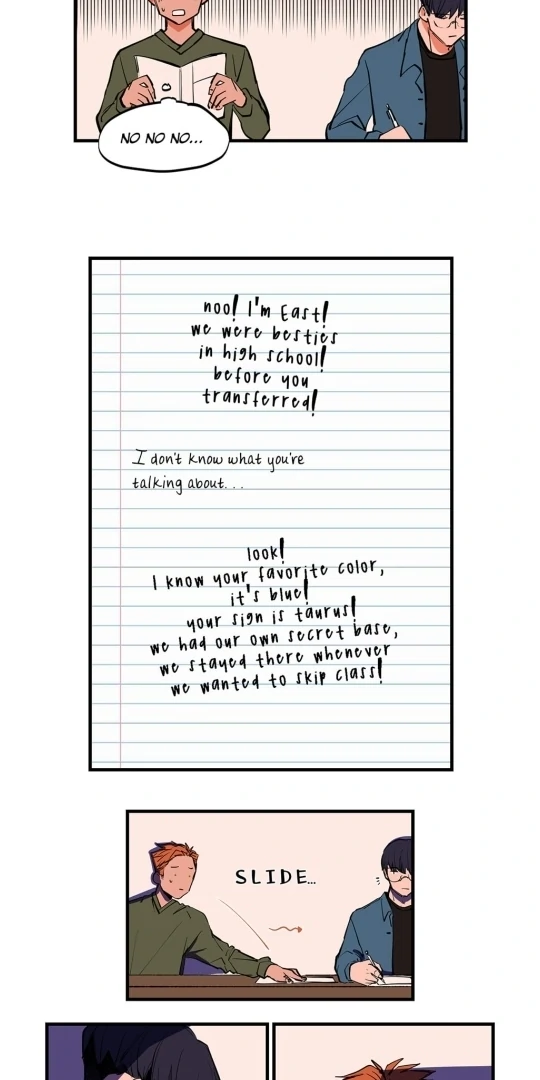 NO NO NO...
noo! I'm East!
we were besties
in high school!
before you
transferred!
I don't know what you're
talking about...
look!
I know your favorite color,
it's blue!
your sign is taurus!
we had our own secret base,
we stayed there whenever
we wanted to skip class!
SLIDE...